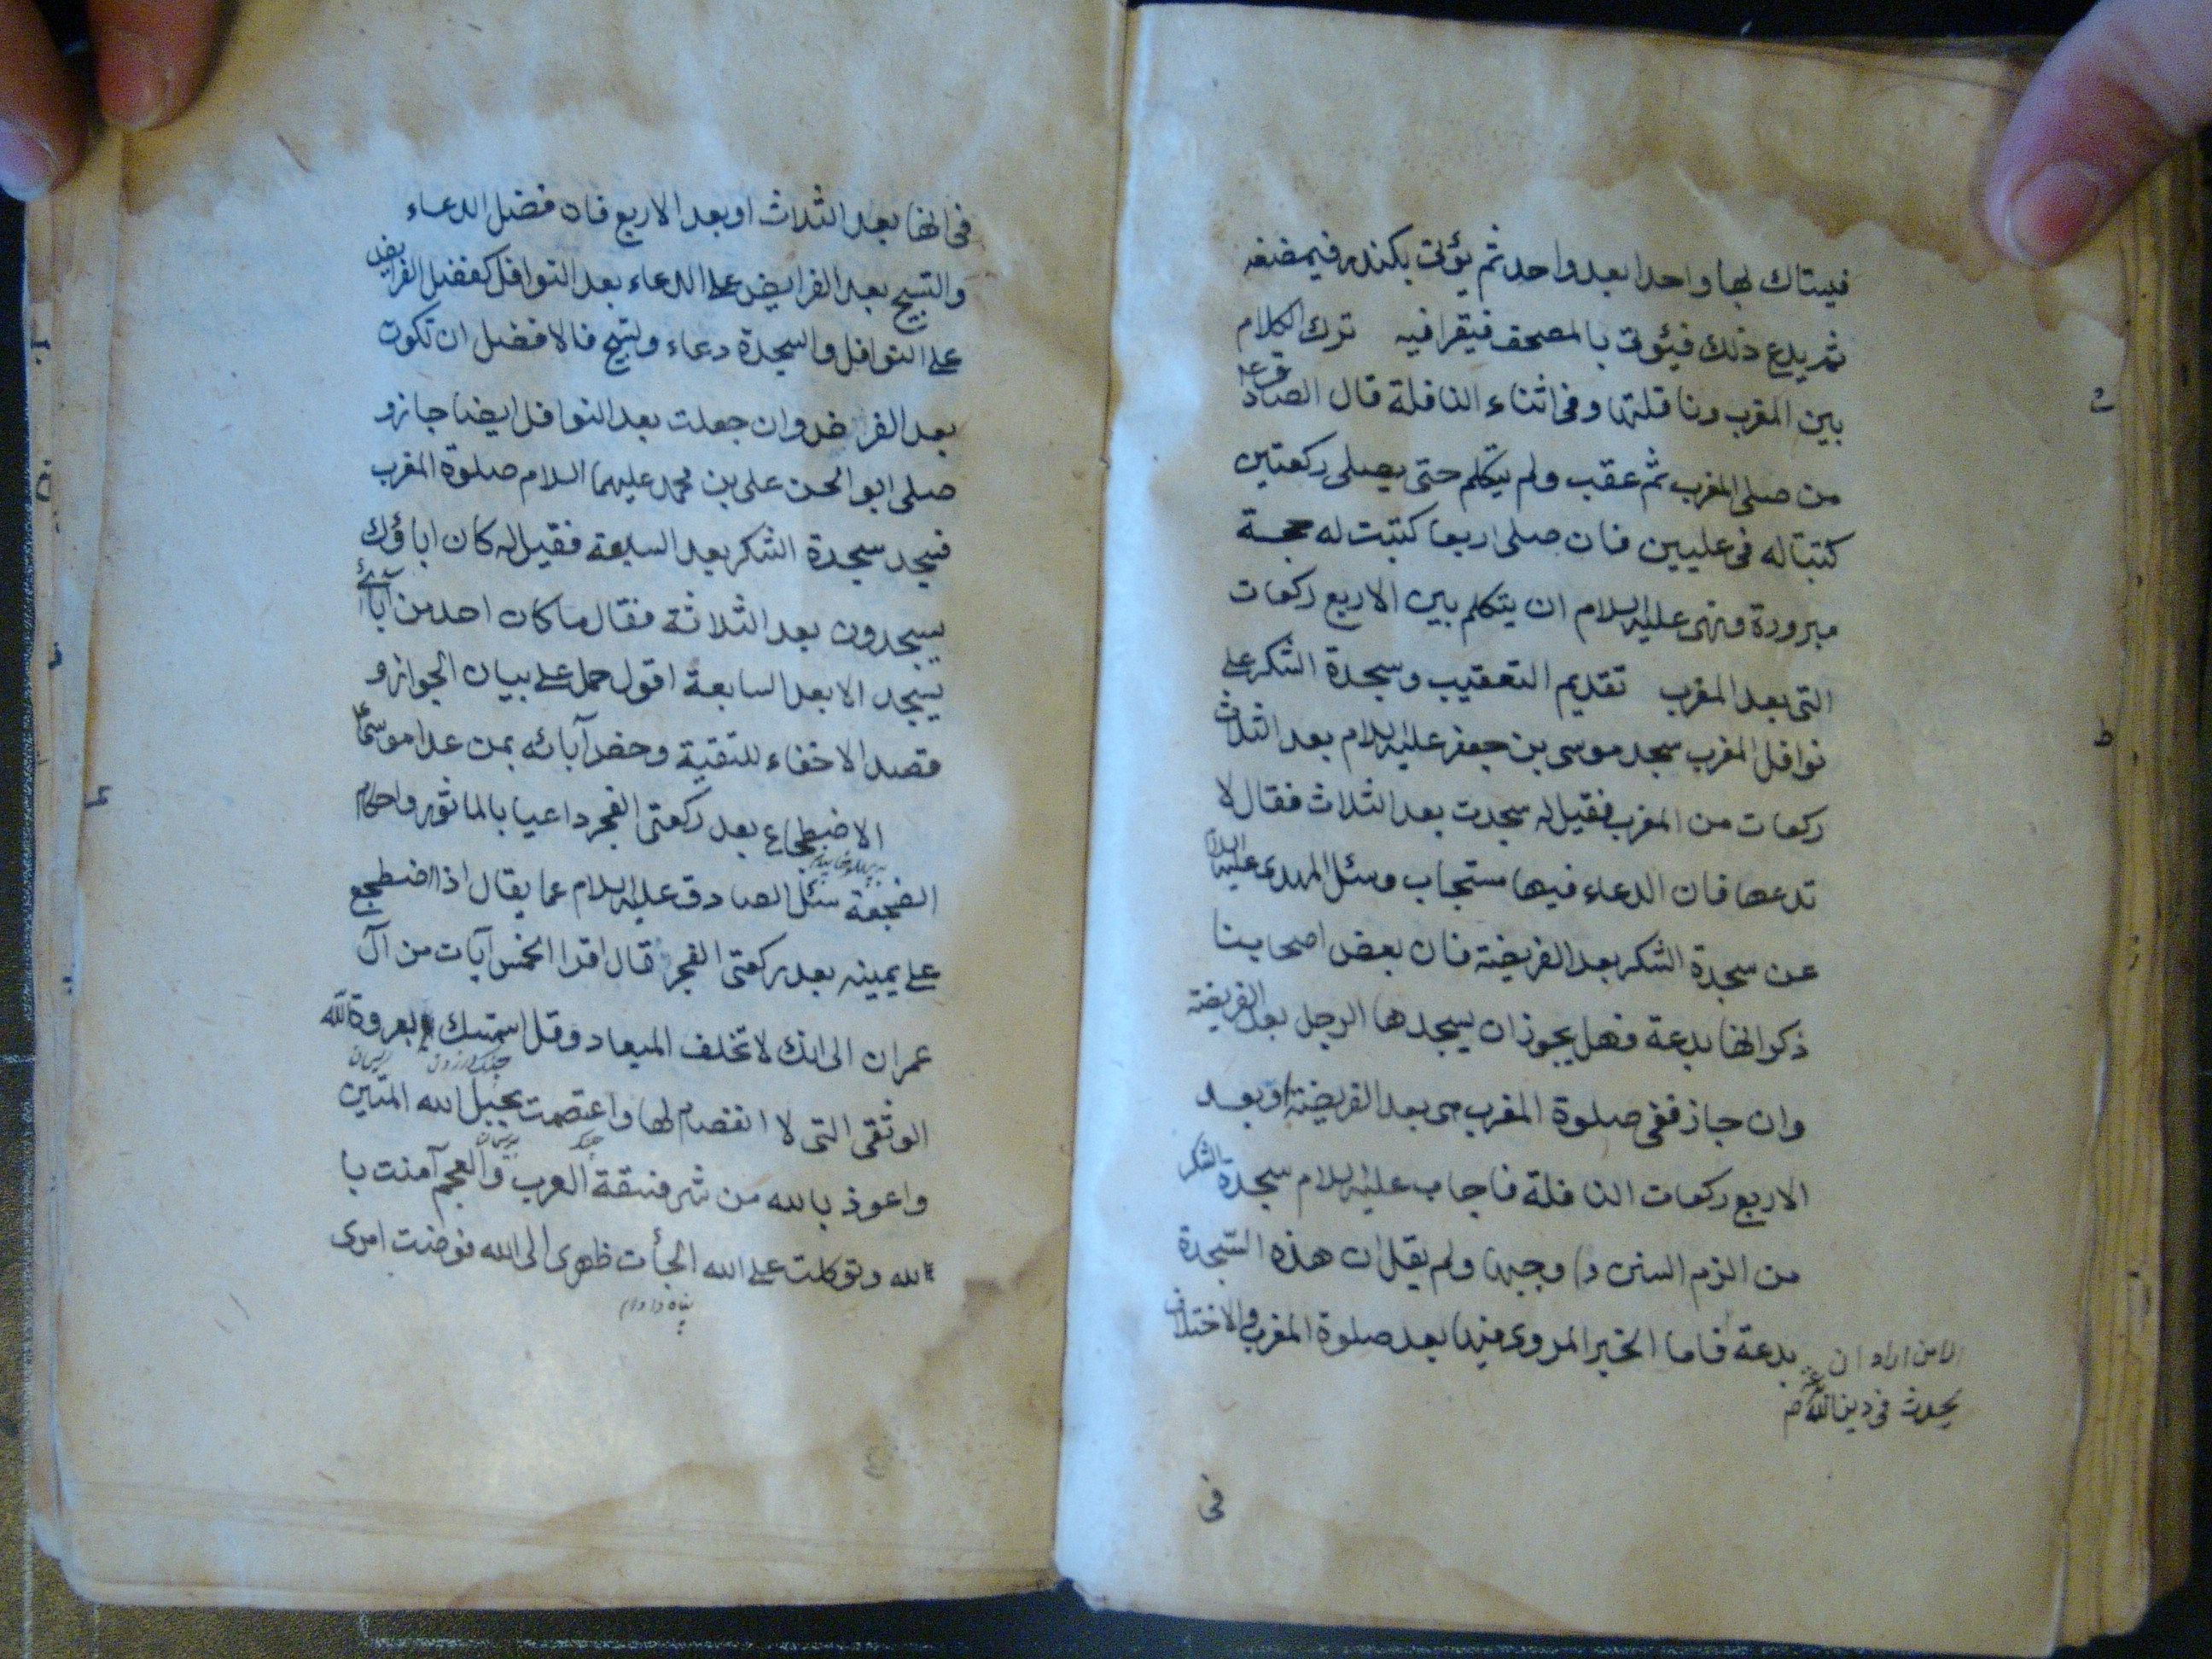 فيستاك بها واحدا بعد واحد ثم يؤتى بكندر فيمضغه
ثم يدع ذلك فيؤتى بالمصحف فيقرا فيه ترك الكلام
بين المغرب ونافلتها وفى اثناء النافلة قال الصادق ع
من صلى المغرب ثم عقب ولم يتكلم حتى يصلى ركعتين
كتبتا له فى عليين فان صلى اربعا كتبت له حجة
مبرورة ونهى عليه السلام ان يتكلم بين الاربع ركعات
التى بعد المغرب تقديم التعقيب وسجدة الشكر على
نوافل المغرب سجد موسى بن جعفر عليه السلام بعد الثلاث
ركعات من المغرب فقيل له سجدت بعد الثلاث فقال لا
تدعها فان الدعاء فيها مستجاب وسئل المهدى عليه السلام
عن سجدة الشكر بعد الفريضة فان بعض اصحابنا
ذكر انها بدعة فهل يجوز ان يسجدها الرجل بعد الفريضة
وان جاز ففى صلوة المغرب هى بعد الفريضة او بعد
الاربع ركعات النافلة فاجاب عليه السلام سجدة الشكر
من الزم السنن واوجبها ولم يقل ان هذه السجدة
بدعة فاما الخبر المروى فيها بعد صلوة المغرب والاختلاف
الا من اراد ان
يحدث فى دين الله
فى
فى انها بعد الثلاث او بعد الاربع فان فضل الدعاء
والتسبيح بعد الفرايض على الدعاء بعد النوافل كفضل الفرايض
على النوافل والسجدة دعاء وتسبيح فالافضل ان تكون
بعد الفرض وان جعلت بعد النوافل ايضا جاز و
صلى ابو الحسن على بن محمد عليهما السلام صلوة المغرب
فسجد سجدة الشكر بعد السابعة فقيل له كان اباؤك
يسجدون بعد الثلاثة فقال ما كان احد من آبائى
يسجد الا بعد السابعة اقول حمل على بيان الجواز و
قصد الاخفاء للتقية وخص آبائه بمن عدا موسى ع
الاضطجاع بعد ركعتى الفجر داعيا بالماثور واحكام
الضجعة سئل الصادق عليه السلام عما يقال اذا اضطجع
على يمينه بعد ركعتى الفجر قال اقرا الخمس آيات من آل
عمران الى انك لا تخلف الميعاد وقل استمسك بعروة الله
الوثقى التى لا انفصام لها واعتصمت بحبل الله المتين
واعوذ بالله من شر فسقة العرب والعجم آمنت با
لله وتوكلت على الله الجأت ظهرى الى الله فوضت امرى
پناه دادم